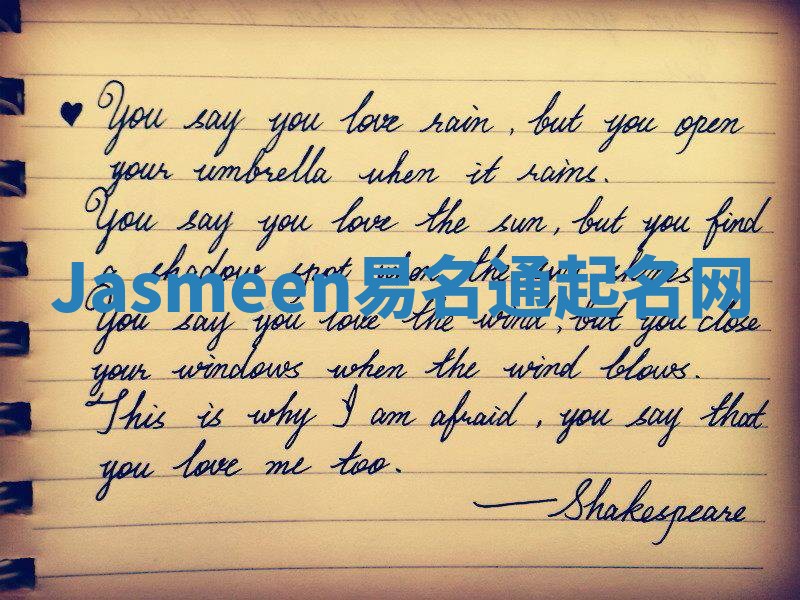 ♥ You say you love rain, but you open
your umbrella when it rains.
You say you love the sun, but you find
a shadow spot when the sun shines.
Jasmeen易名通起名网
You say you love the wind, but you close
your windows when the wind blows.
This is why I am afraid, you say that
you love me too.
—Shakespeare